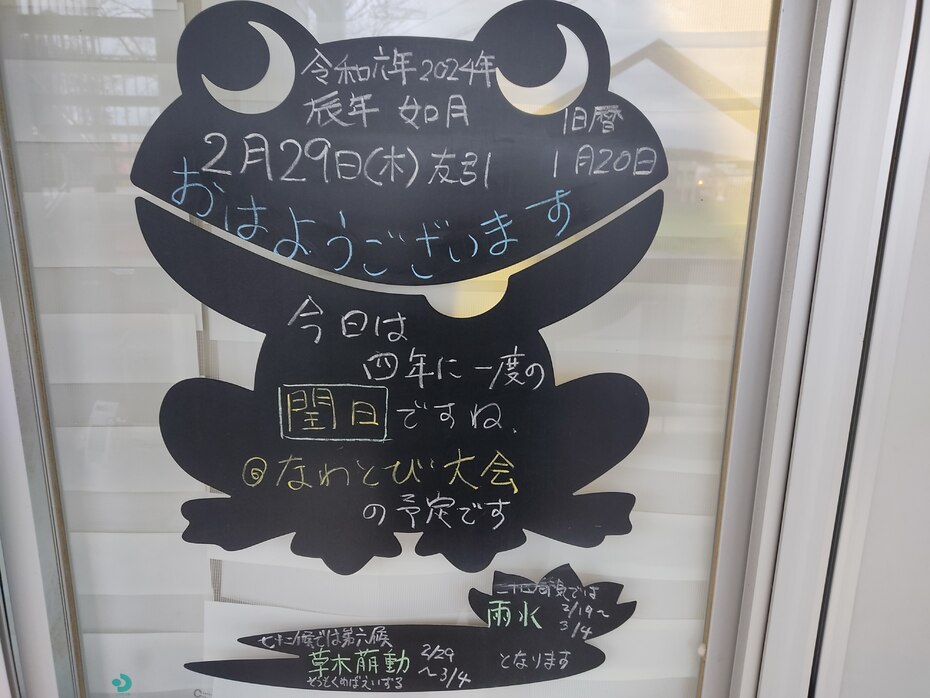 令和六年 2024年
辰年 如月
旧暦
2月29日(木)友引 1月20日
おはようございます
今日は
四年に一度の
閏日ですね、
◎なわとび大会
の予定です
二十四節気では
雨水 2/19〜
3/4
となります
七十二候では第六候
草木萌動 2/29
〜3/4
そうもくめばえいずる